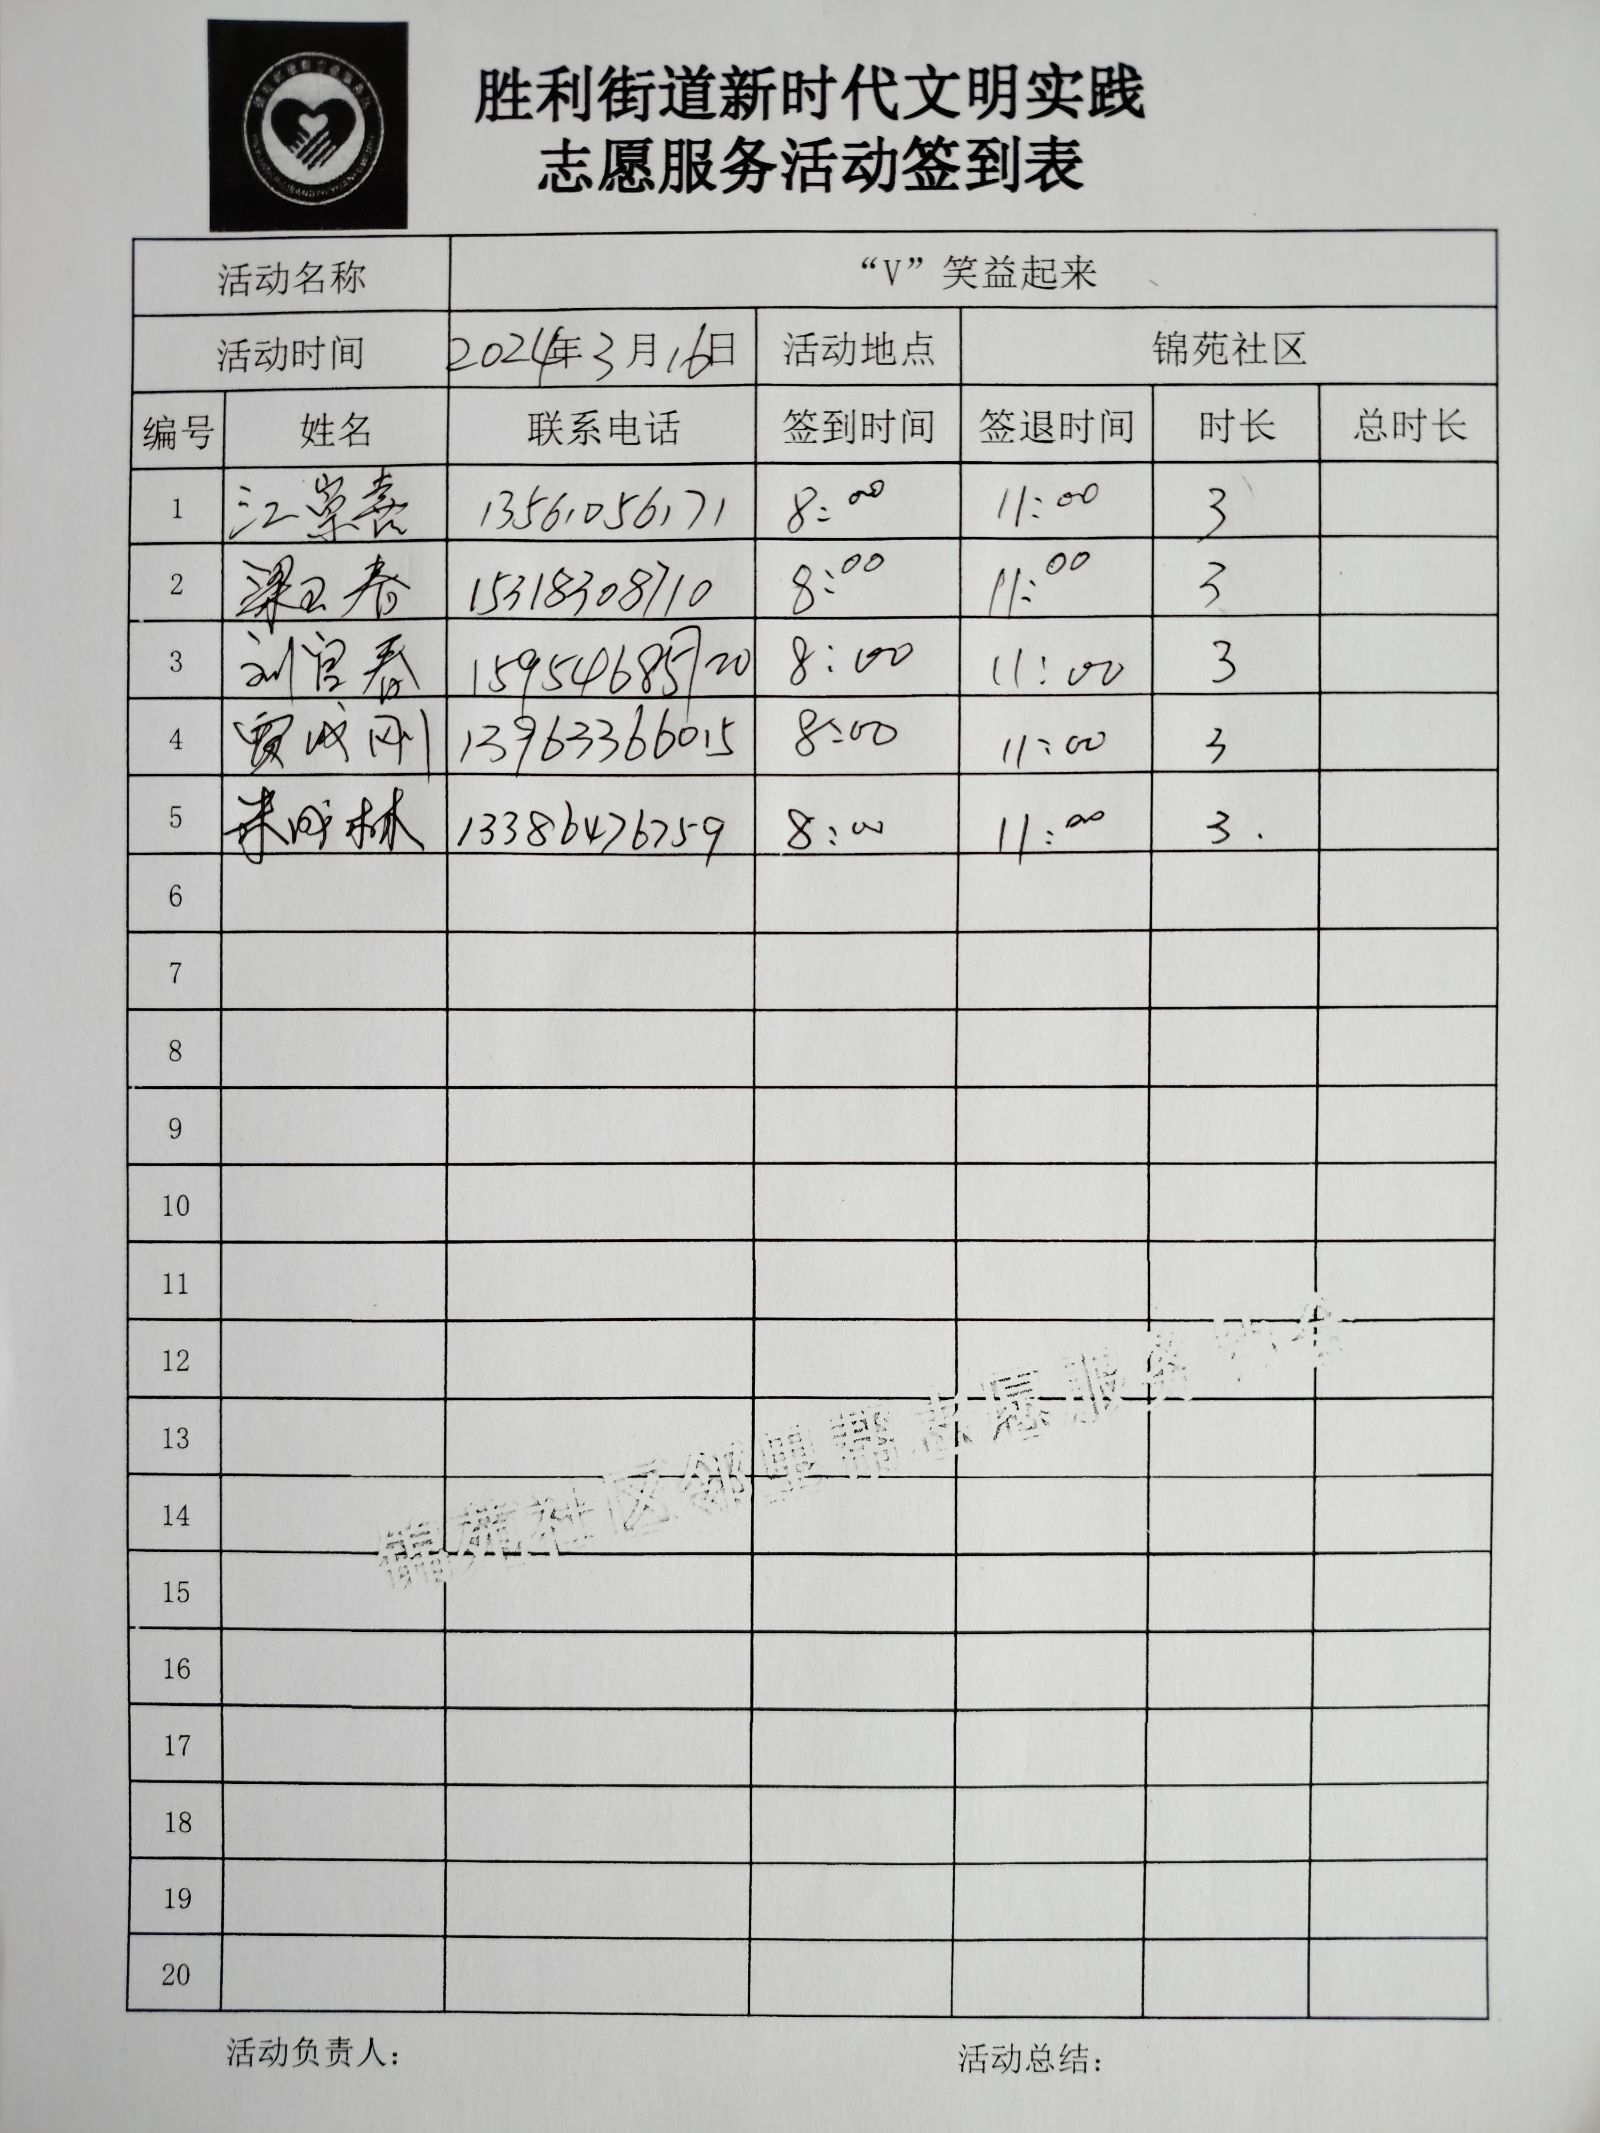 胜利街道新时代文明实践
志愿服务活动签到表
活动名称 “V”笑益起来
活动时间 2024年3月16日 活动地点 锦苑社区
编号 姓名 联系电话 签到时间 签退时间 时长 总时长
1 江崇喜 13561056171 8:00 11:00 3
2 梁玉春 15318308710 8:00 11:00 3
3 刘官春 15954685720 8:00 11:00 3
4 贾成刚 13963366015 8:00 11:00 3
5 朱成林 13386476759 8:00 11:00 3.
6
7
8
9
10
11
12
13
锦苑社区邻里帮志愿服务
14
15
16
17
18
19
20
活动负责人: 活动总结: